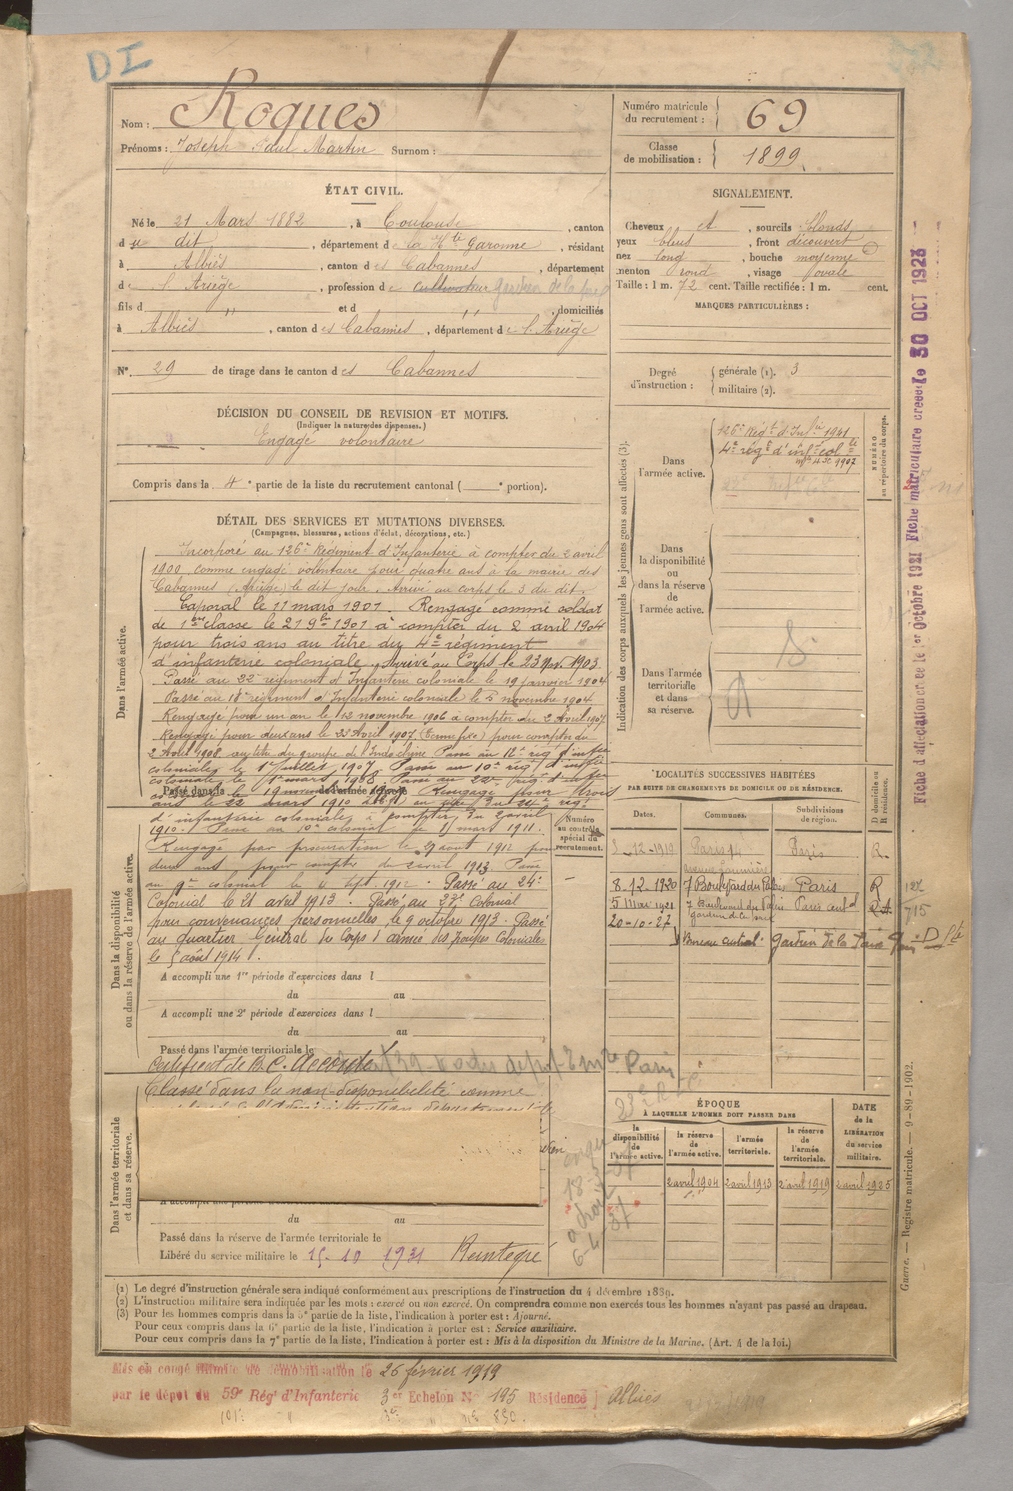 DI
Nom : Roques
Prénoms : Joseph Paul Martin Surnom :
Numéro matricule du recrutement : 69
Classe de mobilisation : 1899
ÉTAT CIVIL.
Né le 21 Mars 1882, à Toulouse, canton
du dit, département de la Hte Garonne, résidant
à Albiès, canton des Cabannes, département
de l'Ariège, profession de cultivateur gardien de la
fils d " et d ", domiciliés
à Albiès, canton des Cabannes, département de l'Ariège
N° 29 de tirage dans le canton des Cabannes
SIGNALEMENT.
Cheveux et, sourcils blonds
yeux bleus, front découvert
nez long, bouche moyenne
menton rond, visage ovale
Taille : 1 m. 72 cent. Taille rectifiée : 1 m. cent.
MARQUES PARTICULIÈRES :
Degré d'instruction : générale (1). 3
militaire (2).
DÉCISION DU CONSEIL DE REVISION ET MOTIFS.
(Indiquer la nature des dispenses.)
Engagé volontaire
Compris dans la 4e partie de la liste du recrutement cantonal ( e portion).
Indication des corps auxquels les jeunes gens sont affectés (3).
NUMÉRO au répertoire du corps.
Dans l'armée active.
126e Régt d'Infie
4e régt d'infie colle
1902
Dans la disponibilité ou dans la réserve de l'armée active.
Dans l'armée territoriale et dans sa réserve.
DÉTAIL DES SERVICES ET MUTATIONS DIVERSES.
(Campagnes, blessures, actions d'éclat, décorations, etc.)
Dans l'armée active.
Incorporé au 126e Régiment d'Infanterie à compter du 2 avril
1900 comme engagé volontaire pour quatre ans à la mairie des
Cabannes (Ariège) le dit jour. Arrivé au corps le 3 du dit.
Caporal le 11 mars 1901. Rengagé comme soldat
de 1ère classe le 21 9bre 1901 à compter du 2 avril 1904
pour trois ans au titre du 4e régiment
d'infanterie coloniale. Arrivé au Corps le 23 Nov. 1903.
Passé au 22e régiment d'Infanterie coloniale le 19 janvier 1904
Passé au 18e régiment d'Infanterie coloniale le 5 novembre 1904
Rengagé pour un an le 12 novembre 1906 à compter du 2 Avril 1907
Rengagé pour deux ans le 23 Avril 1907 pour compter du
2 Avril 1908 au titre du groupe de l'Indochine Passé au régt d'infie
coloniale le 1er juillet 1907 Passé au 10e régt d'infie
coloniale le 1er mars 1908 Passé au 22e régt d'infie
Passé dans la de l'armée active
le 19 novembre Rengagé pour trois
ans le 22 mars 1910 au régt
d'infanterie coloniale à compter du 2 avril
1910. Passé au 10e colonial le mars 1911.
Numéro au contrôle spécial du recrutement.
Dans la disponibilité ou dans la réserve de l'armée active.
Rengagé par procuration le 29 août 1912 pour
deux ans pour compter du 2 avril 1913 Passé
au 9e colonial le sept. 1912. Passé au 24e
Colonial le 21 avril 1913. Passé au Colonial
pour convenances personnelles, le 9 octobre 1913. Passé
au quartier Général du Corps d'armée des troupes Coloniales
le 5 août 1914.
A accompli une 1re période d'exercices dans l
du au
A accompli une 2e période d'exercices dans l
du au
Passé dans l'armée territoriale le
Certificat de B. C. Accordé
Dans l'armée territoriale et dans sa réserve.
Classé dans la non-disponibilité comme
du au
Passé dans la réserve de l'armée territoriale le
Libéré du service militaire le 15-10 1931 Réintégré
LOCALITÉS SUCCESSIVES HABITÉES
PAR SUITE DE CHANGEMENTS DE DOMICILE OU DE RÉSIDENCE.
Dates. Communes. Subdivisions de région. D domicile ou R résidence.
3-12-1919 Paris 14 Paris R.
8.12.1920 7 Boulevard du Palais Paris R
5 Mai 1921 7 Boulevard du Palais Paris central
gardien de la paix
20-10-27 Bureau central. gardien de la Paix
ÉPOQUE
À LAQUELLE L'HOMME DOIT PASSER DANS
la disponibilité de l'armée active. la réserve de l'armée active. l'armée territoriale. la réserve de l'armée territoriale.
DATE de la LIBÉRATION du service militaire.
2 avril 1904 2 avril 1913 2 avril 1919 2 avril 1925
(1) Le degré d'instruction générale sera indiqué conformément aux prescriptions de l'instruction du 4 décembre 1889.
(2) L'instruction militaire sera indiquée par les mots : exercé ou non exercé. On comprendra comme non exercés tous les hommes n'ayant pas passé au drapeau.
(3) Pour les hommes compris dans la 5e partie de la liste, l'indication à porter est : Ajourné.
Pour ceux compris dans la 6e partie de la liste, l'indication à porter est : Service auxiliaire.
Pour ceux compris dans la 7e partie de la liste, l'indication à porter est : Mis à la disposition du Ministre de la Marine. (Art. 4 de la loi.)
Mis en congé illimité de démobilisation le 26 février 1919
par le dépôt du 59e Régt d'Infanterie 3e Echelon N° 195 Résidence Albiès
Fiche d'affectation créée le 1er octobre 1921 Fiche matriculaire créée le 30 OCT 1923
Guerre. — Registre matricule. — 9-89-1902.